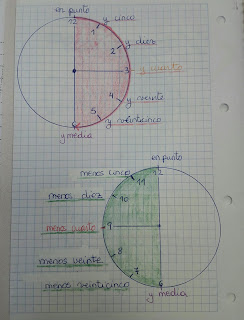 en punto
12
y cinco
1
y diez
2
3 y cuarto
4
y veinte
5
y veinticinco
6
y media
en punto
12
menos cinco
11
menos diez
10
menos cuarto
9
menos veinte
8
menos veinticinco
7
6
y media